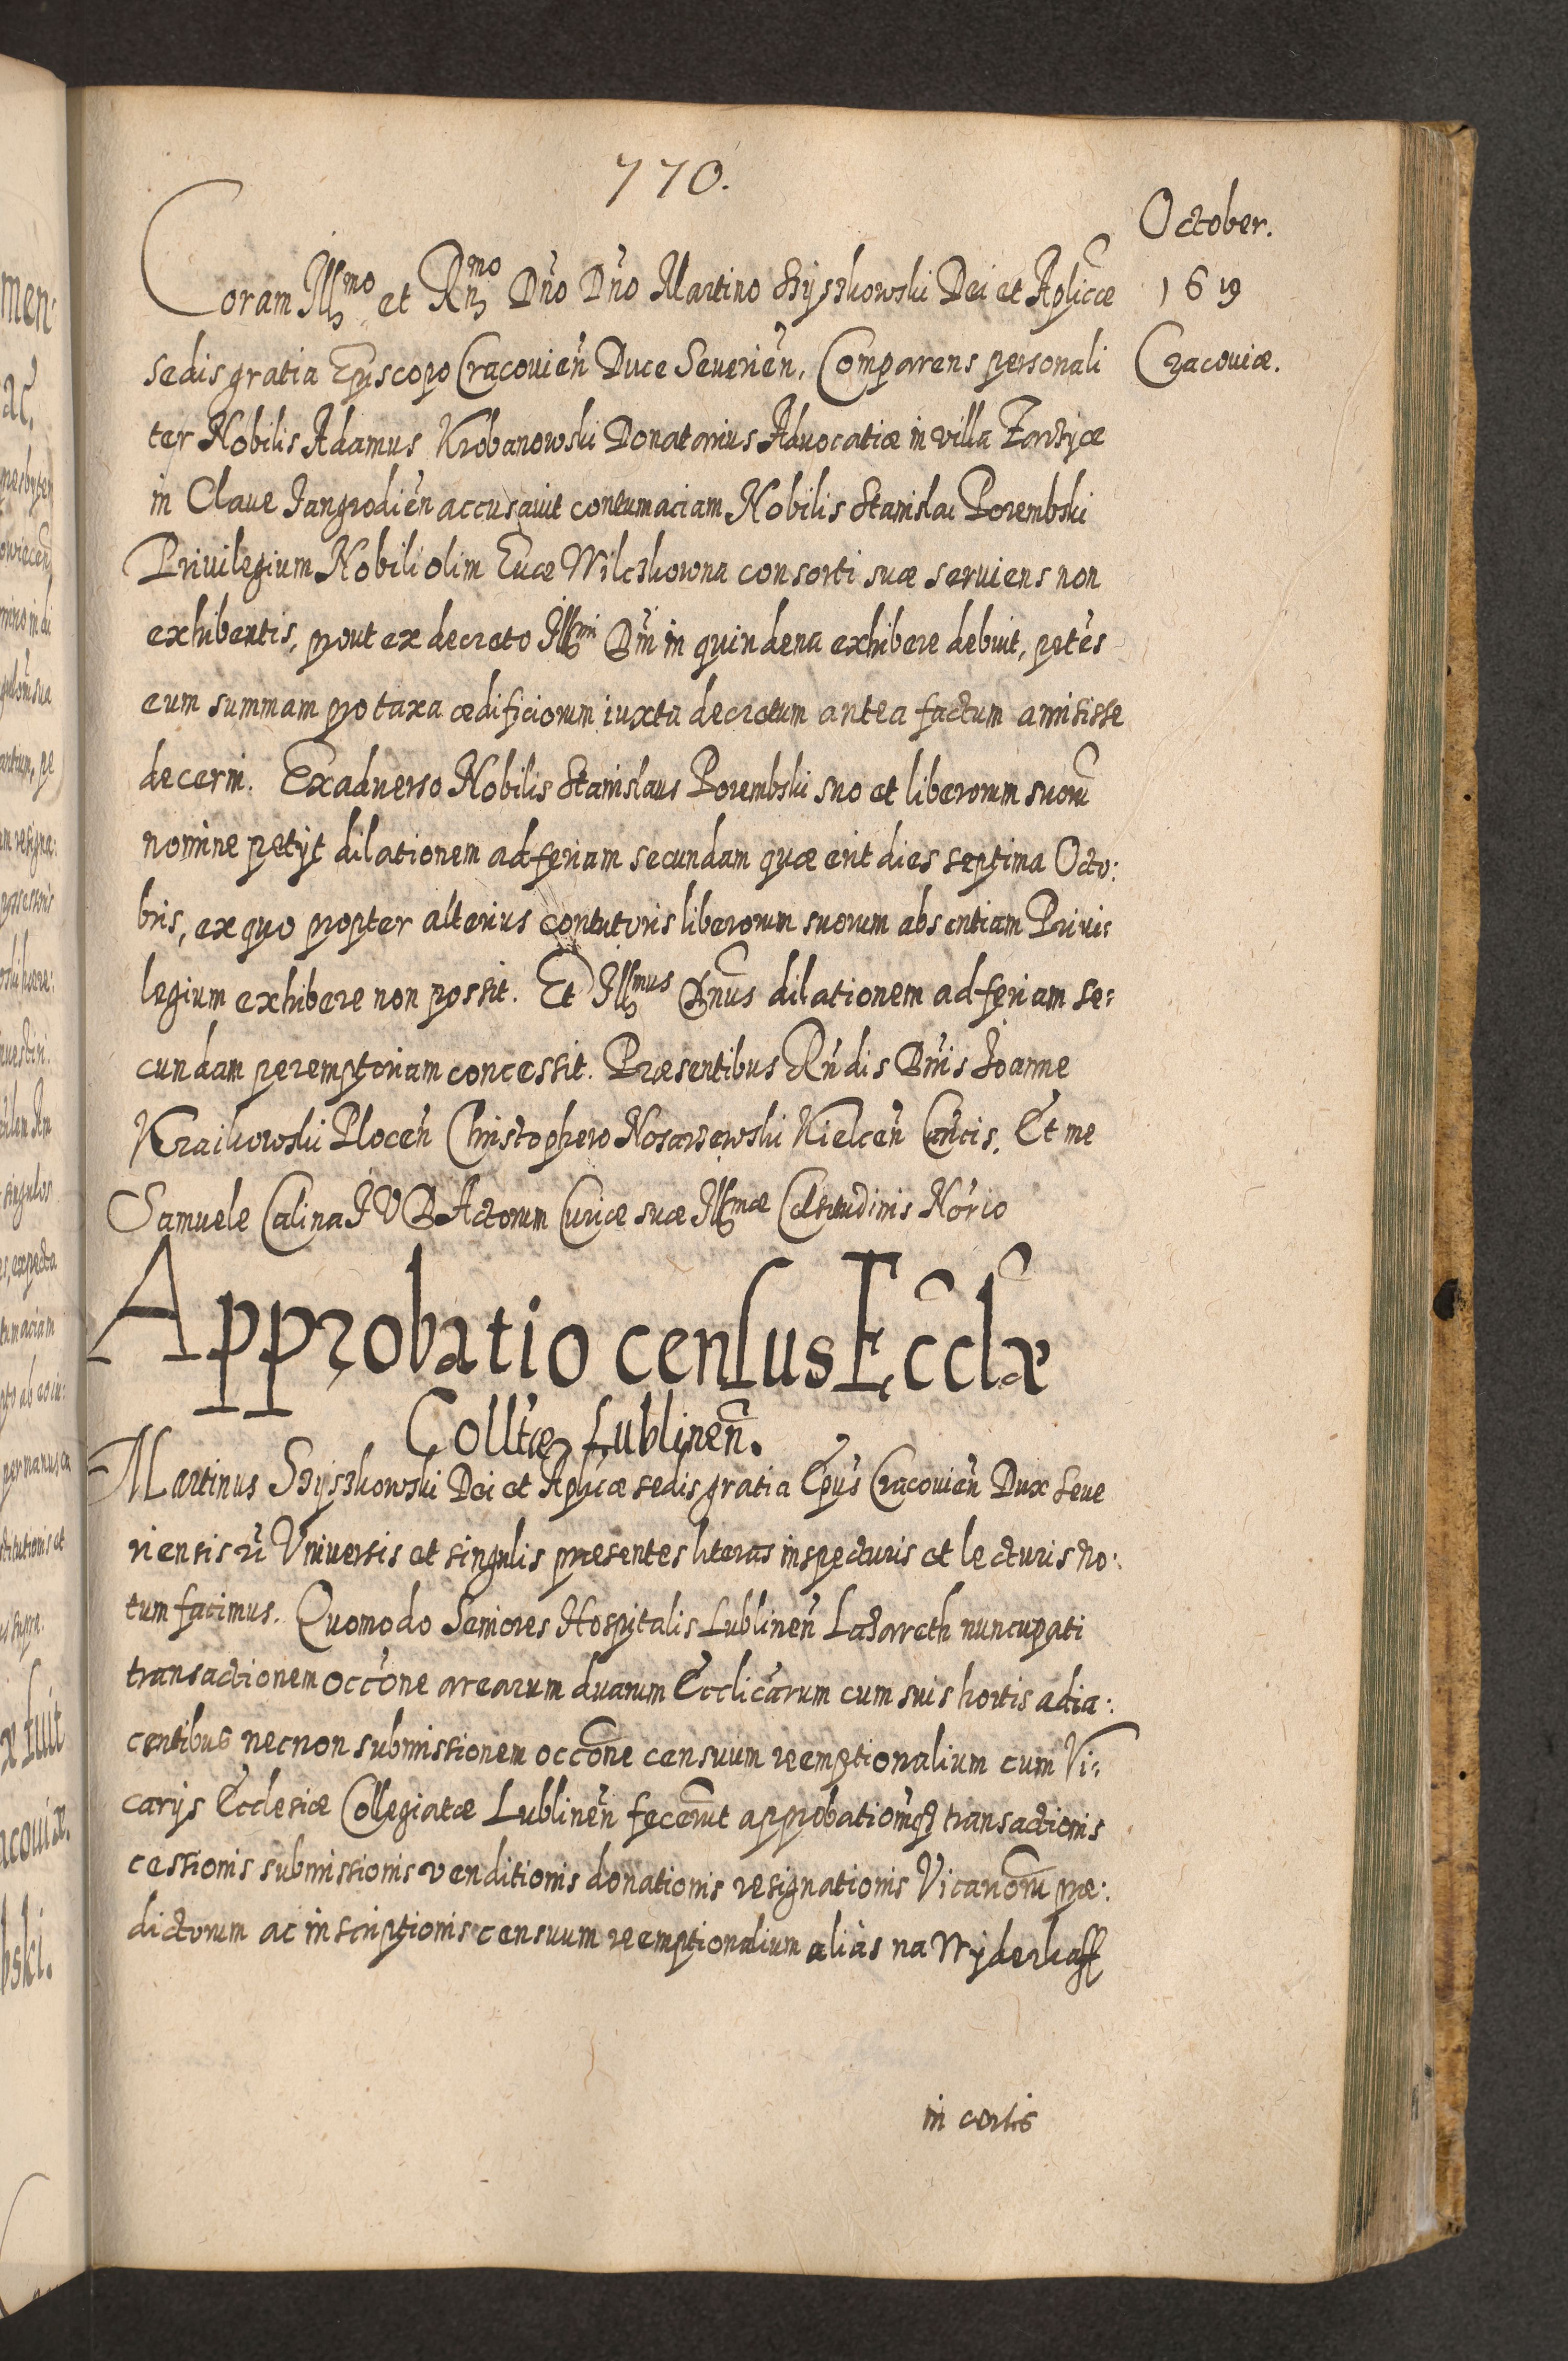 770.
October.
1619
Cracouiæ.
Coram Illmo et Rnmo Dño Dño Martino Szyszkowski Dei et Aplicæ
sedis gratia Episcopo Cracouien̄ Duce Seuerien̄, Comparens personali
ter Nobilis Adamus Krobanowski Donatarius Aduocatiæ in villa
in Claue Jangrodien̄ accusauit contumaciam Nobilis Stanislai Porembski
Priuilegium Nobili olim Euæ Wilczkowna consorti suæ seruiens non
exhibentis, prout ex decreto Illmi Dn̄i in quindena exhibere debuit, petēs
eum summam pro taxa ædificiorum iuxta decretum antea factum amisisse
decerni. Ex aduerso Nobilis Stanislaus Porembski suo et liberorum suorū
nomine petyt dilationem ad feriam secundam quæ erit dies septima Octo:
bris, ex quo propter alterius contutoris liberorum suorum absentiam Priui:
legium exhibere non possit. Et Illmus Dn̄us dilationem ad feriam se:
cundam peremptoriam concessit. Præsentibus Rn̄dis Dn̄is Joanne
Kraikowski Plocen̄ Christophero Nosarzewski Kielcen̄ Can̄cis. Et me
Samuele Calina J V D Actorum Curiæ suæ Illmæ Celsitudinis Nōrio
Approbatio census Eccl̄æ
Coll̄tæ Lublinen̄.
Martinus Szyszkowski Dei et Aplicæ sedis gratia Ep̄us Cracouien̄ Dux Seue
riensis Vniuersis et singulis præsentes literas inspecturis et lecturis no:
tum facimus. Quomodo Seniores Hospitalis Lublinen̄ Lazareth nuncupati
transactionem occōne arearum duarum Eccl̄icarum cum suis hortis adia:
centibus necnon submissionem occōne censuum reemptionalium cum Vi:
carijs Ecclesiæ Collegiatæ Lublinen̄ fecerunt approbationisq̃ transactionis
cessionis submissionis venditionis donationis resignationis Vicariorū præ:
dictorum ac inscriptionis censuum reemptionalium aliàs na Wyderkaff
in certis